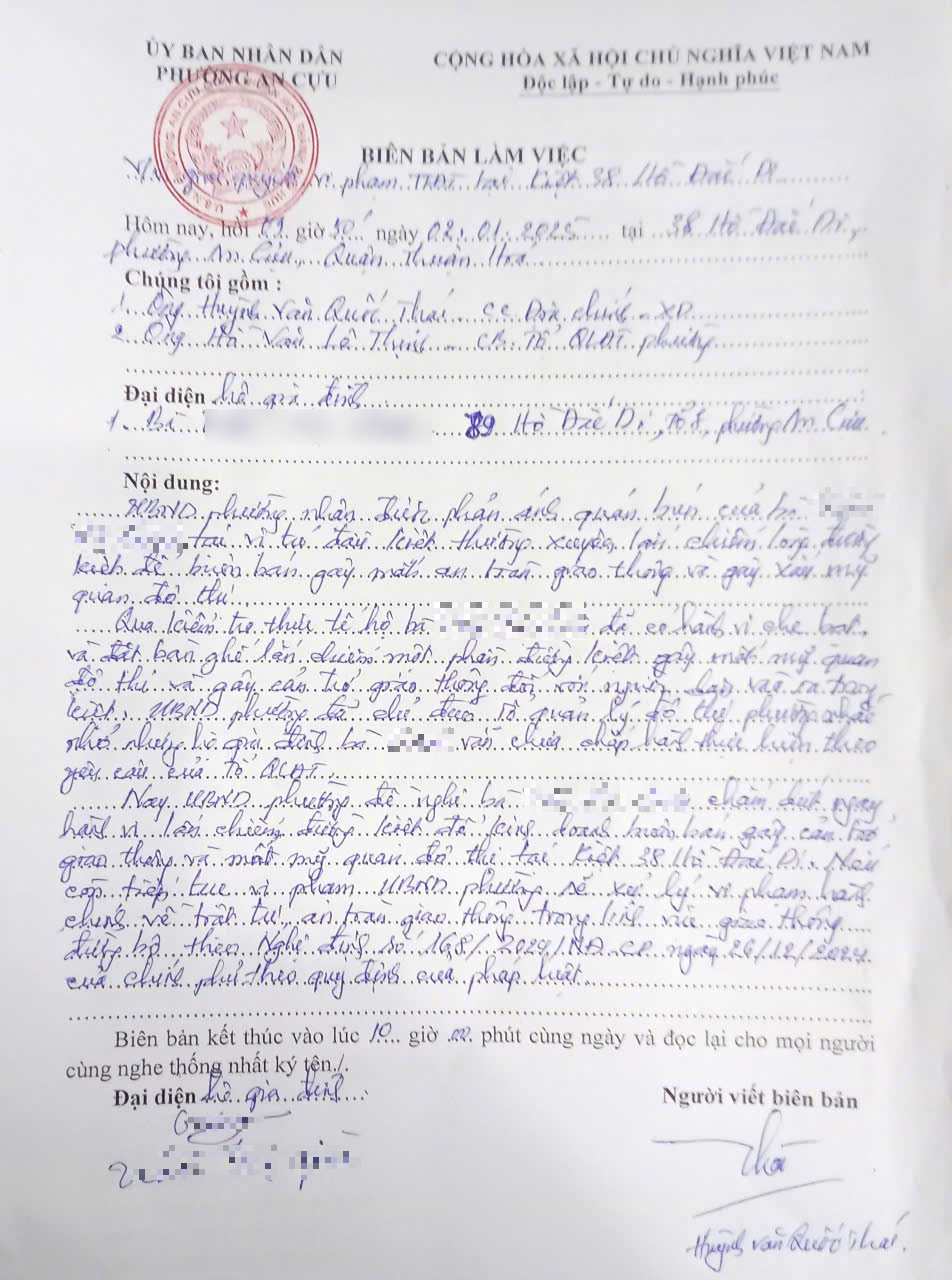 ỦY BAN NHÂN DÂN
PHƯỜNG AN CỰU
CỘNG HÒA XÃ HỘI CHỦ NGHĨA VIỆT NAM
Độc lập - Tự do - Hạnh phúc
BIÊN BẢN LÀM VIỆC
V/v giải quyết vi phạm TTĐT tại Kiệt 38 Hồ Đắc Di
Hôm nay, hồi 09 giờ 30 ngày 02.01.2025 tại 38 Hồ Đắc Di,
phường An Cựu, Quận Thuận Hóa
Chúng tôi gồm :
1. Ông Huỳnh Văn Quốc Thái CC Địa chính - XD
2. Ông Hà Văn Lê Thịnh - CB Tổ QLĐT phường
Đại diện hộ gia đình :
1. Bà 89 Hồ Đắc Di, Tổ 8, phường An Cựu
Nội dung:
UBND phường nhận được phản ánh quán bún của bà
tại vị trí đầu kiệt thường xuyên lấn chiếm lòng đường
kiệt để buôn bán gây mất an toàn giao thông và gây xấu mỹ
quan đô thị
Qua kiểm tra thực tế hộ bà đã có hành vi che bạt
và đặt bàn ghế lấn chiếm một phần đường kiệt gây mất mỹ quan
đô thị và gây cản trở giao thông đối với người dân vào ra trong
kiệt. UBND phường đã chỉ đạo tổ quản lý đô thị phường nhắc
nhở nhưng hộ gia đình bà vẫn chưa chấp hành thực hiện theo
yêu cầu của tổ QLĐT.
Nay UBND phường đề nghị bà chấm dứt ngay
hành vi lấn chiếm đường kiệt để kinh doanh buôn bán gây cản trở
giao thông và mất mỹ quan đô thị tại Kiệt 38 Hồ Đắc Di. Nếu
còn tiếp tục vi phạm UBND phường sẽ xử lý vi phạm hành
chính về trật tự, an toàn giao thông trong lĩnh vực giao thông
đường bộ theo Nghị định số 168/2024/NĐ-CP ngày 26/12/2024
của chính phủ theo quy định của pháp luật.
Biên bản kết thúc vào lúc 10 giờ 00 phút cùng ngày và đọc lại cho mọi người
cùng nghe thống nhất ký tên./.
Đại diện hộ gia đình
Người viết biên bản
Thái
Huỳnh Văn Quốc Thái